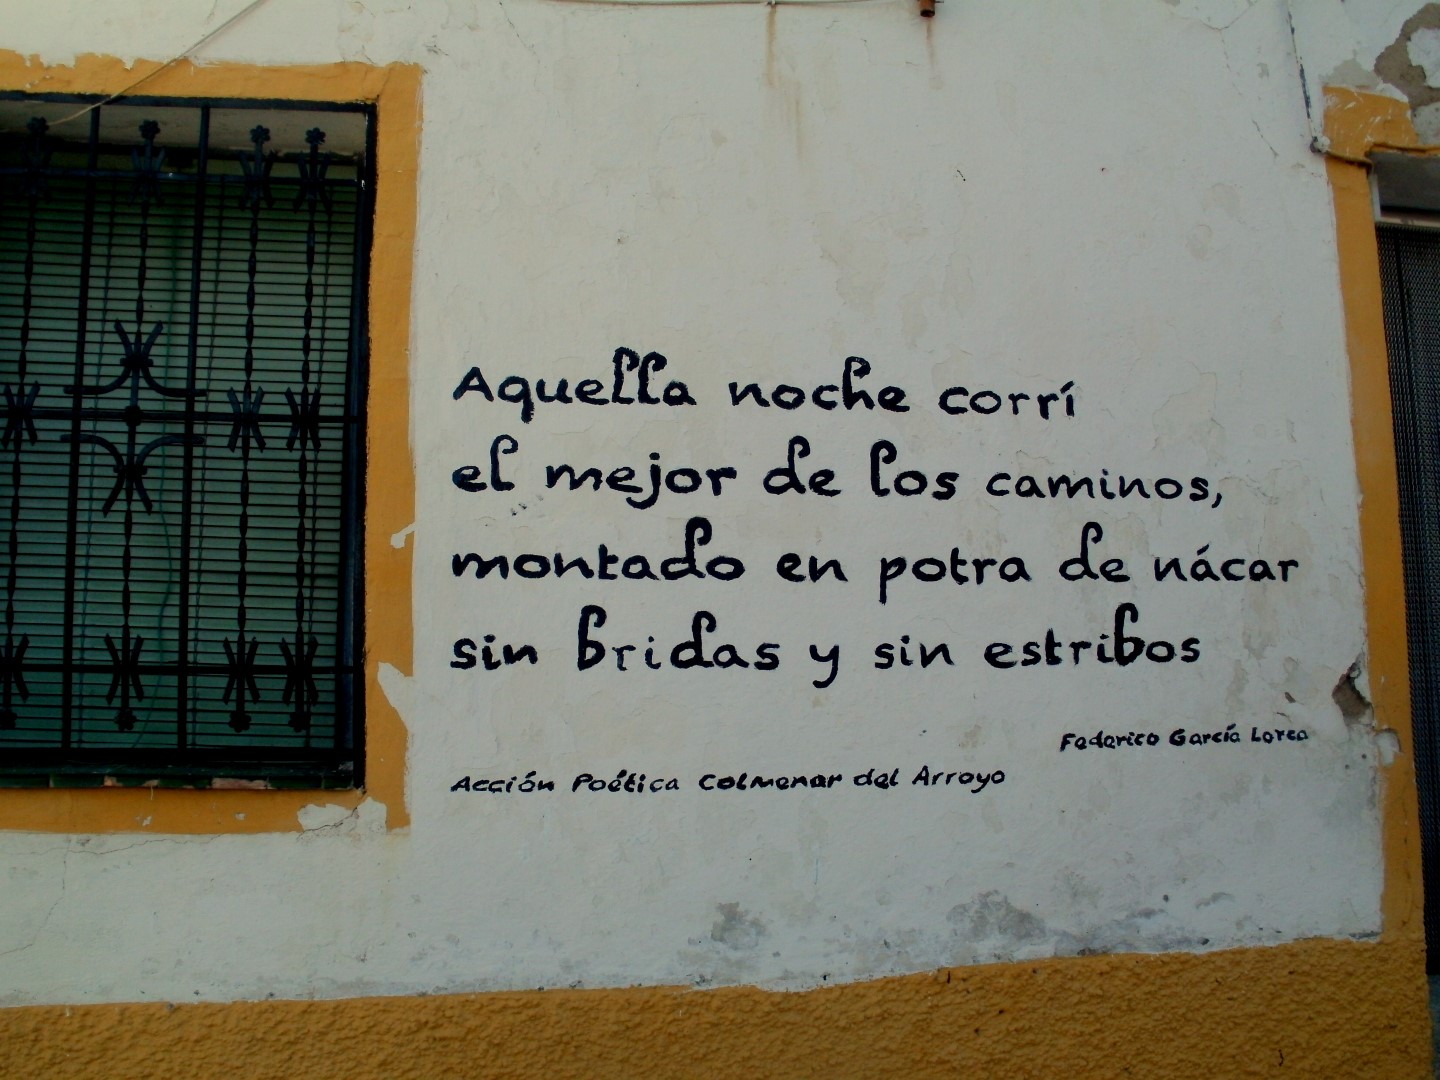 Aquella noche corrí
el mejor de los caminos,
montado en potra de nácar
sin bridas y sin estribos
Federico García Lorca
Acción Poética Colmenar del Arroyo